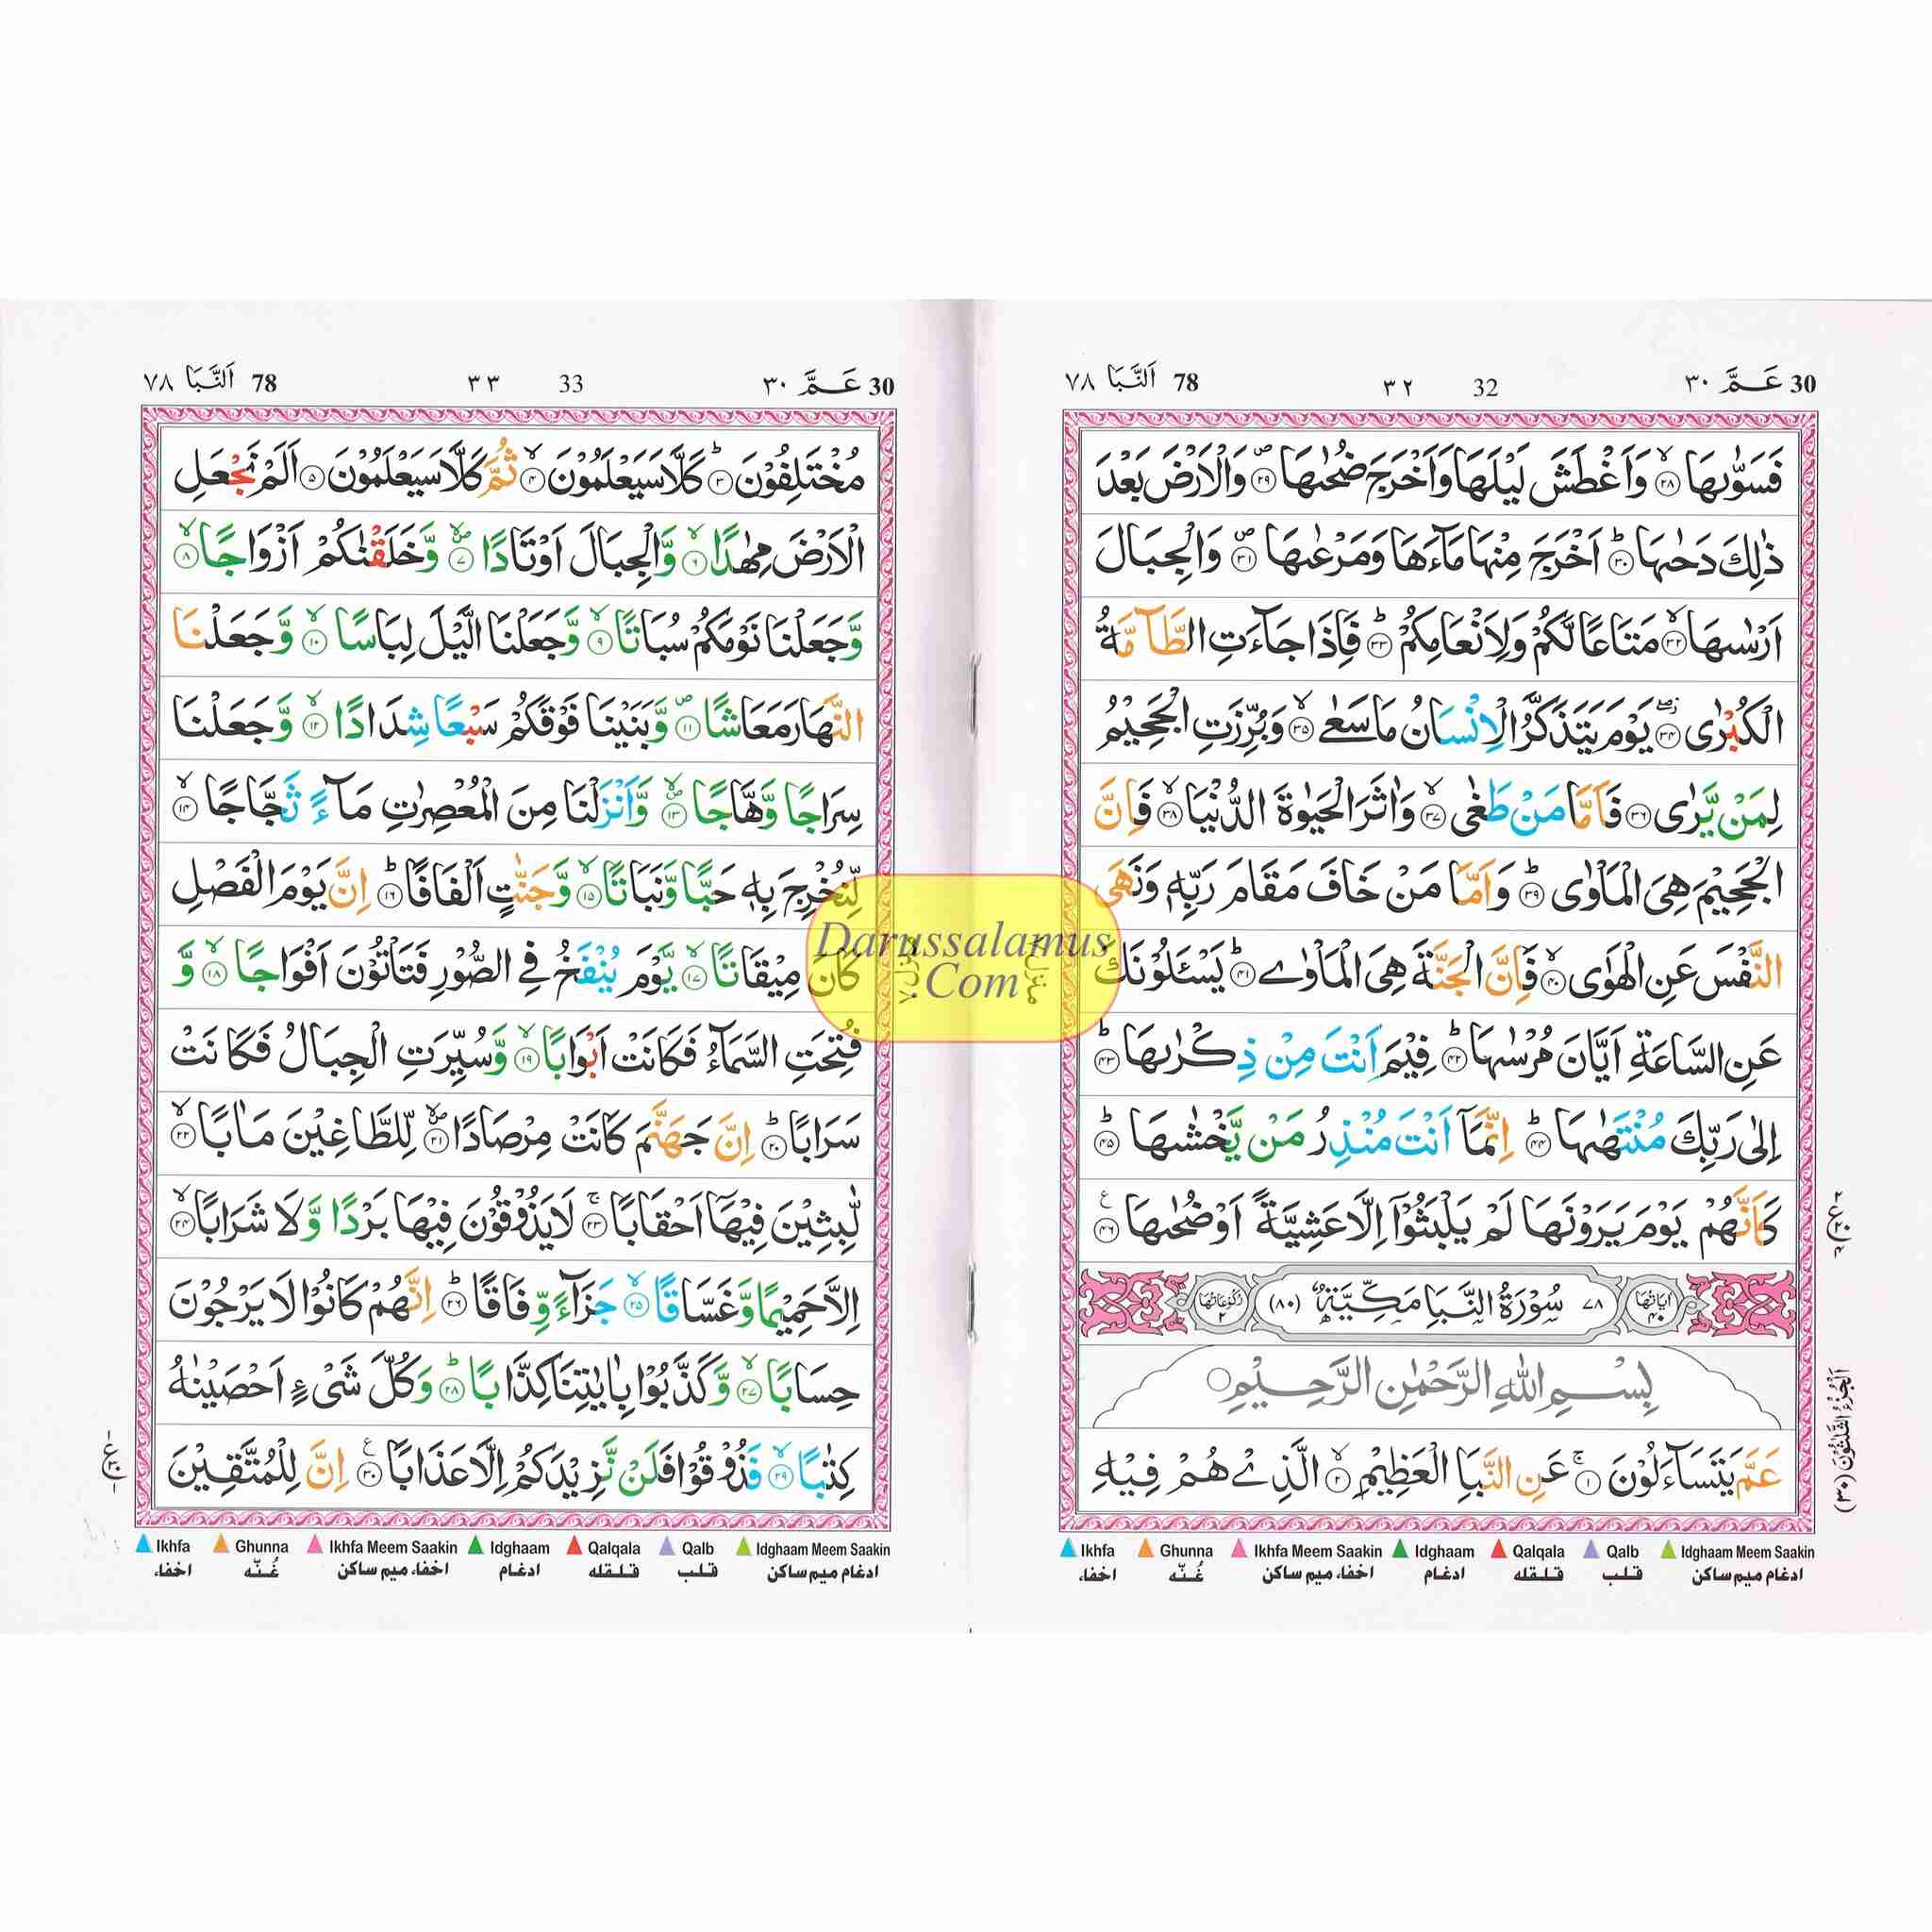 30 عَـمَّ ٣٠ 32 ٣٢ 78 اَلنَّبَا ٧٨
فَسَوّٰىهَا ۙ﴿٢٨﴾ وَاَغْطَشَ لَيْلَهَا وَاَخْرَجَ ضُحٰىهَا ۪﴿٢٩﴾ وَالْاَرْضَ بَعْدَ
ذٰلِكَ دَحٰىهَا ؕ﴿٣٠﴾ اَخْرَجَ مِنْهَا مَآءَهَا وَمَرْعٰىهَا ۪﴿٣١﴾ وَالْجِبَالَ
اَرْسٰىهَا ۙ﴿٣٢﴾ مَتَاعًا لَّكُمْ وَلِاَنْعَامِكُمْ ؕ﴿٣٣﴾ فَاِذَا جَآءَتِ الطَّآمَّةُ
الْكُبْرٰى ۖ﴿٣٤﴾ يَوْمَ يَتَذَكَّرُ الْاِنْسَانُ مَا سَعٰى ۙ﴿٣٥﴾ وَبُرِّزَتِ الْجَحِيْمُ
لِمَنْ يَّرٰى ﴿٣٦﴾ فَاَمَّا مَنْ طَغٰى ۙ﴿٣٧﴾ وَاٰثَرَ الْحَيٰوةَ الدُّنْيَا ۙ﴿٣٨﴾ فَاِنَّ
الْجَحِيْمَ هِيَ الْمَاْوٰى ؕ﴿٣٩﴾ وَاَمَّا مَنْ خَافَ مَقَامَ رَبِّهٖ وَنَهَى
النَّفْسَ عَنِ الْهَوٰى ۙ﴿٤٠﴾ فَاِنَّ الْجَنَّةَ هِيَ الْمَاْوٰى ؕ﴿٤١﴾ يَسْـَٔلُوْنَكَ
عَنِ السَّاعَةِ اَيَّانَ مُرْسٰىهَا ؕ﴿٤٢﴾ فِيْمَ اَنْتَ مِنْ ذِكْرٰىهَا ؕ﴿٤٣﴾
اِلٰى رَبِّكَ مُنْتَهٰىهَا ؕ﴿٤٤﴾ اِنَّمَآ اَنْتَ مُنْذِرُ مَنْ يَّخْشٰىهَا ؕ﴿٤٥﴾
كَاَنَّهُمْ يَوْمَ يَرَوْنَهَا لَمْ يَلْبَثُوْٓا اِلَّا عَشِيَّةً اَوْ ضُحٰىهَا ﴿٤٦﴾
اٰيَاتُهَا ٤٠ ٧٨ سُوْرَةُ النَّبَاِ مَكِّيَّةٌ (٨٠) رُكُوْعَاتُهَا ٢
بِسْمِ اللّٰهِ الرَّحْمٰنِ الرَّحِيْمِ
عَمَّ يَتَسَآءَلُوْنَ ۚ﴿١﴾ عَنِ النَّبَاِ الْعَظِيْمِ ۙ﴿٢﴾ الَّذِيْ هُمْ فِيْهِ
اَلْجُزْءُ الثَّلٰثُوْنَ (٣٠)
Ikhfa Ghunna Ikhfa Meem Saakin Idghaam Qalqala Qalb Idghaam Meem Saakin
اخفاء غُنّه اخفاء ميم ساكن ادغام قلقله قلب ادغام ميم ساكن
30 عَـمَّ ٣٠ 33 ٣٣ 78 اَلنَّبَا ٧٨
مُخْتَلِفُوْنَ ؕ﴿٣﴾ كَلَّا سَيَعْلَمُوْنَ ۙ﴿٤﴾ ثُمَّ كَلَّا سَيَعْلَمُوْنَ ﴿٥﴾ اَلَمْ نَجْعَلِ
الْاَرْضَ مِهٰدًا ۙ﴿٦﴾ وَّالْجِبَالَ اَوْتَادًا ۪ۙ﴿٧﴾ وَّخَلَقْنٰكُمْ اَزْوَاجًا ۙ﴿٨﴾
وَّجَعَلْنَا نَوْمَكُمْ سُبَاتًا ۙ﴿٩﴾ وَّجَعَلْنَا الَّيْلَ لِبَاسًا ۙ﴿١٠﴾ وَّجَعَلْنَا
النَّهَارَ مَعَاشًا ۪﴿١١﴾ وَّبَنَيْنَا فَوْقَكُمْ سَبْعًا شِدَادًا ۙ﴿١٢﴾ وَّجَعَلْنَا
سِرَاجًا وَّهَّاجًا ۪ۙ﴿١٣﴾ وَّاَنْزَلْنَا مِنَ الْمُعْصِرٰتِ مَآءً ثَجَّاجًا ۙ﴿١٤﴾
لِّنُخْرِجَ بِهٖ حَبًّا وَّنَبَاتًا ۙ﴿١٥﴾ وَّجَنّٰتٍ اَلْفَافًا ؕ﴿١٦﴾ اِنَّ يَوْمَ الْفَصْلِ
كَانَ مِيْقَاتًا ۙ﴿١٧﴾ يَّوْمَ يُنْفَخُ فِي الصُّوْرِ فَتَاْتُوْنَ اَفْوَاجًا ۙ﴿١٨﴾ وَّ
فُتِحَتِ السَّمَآءُ فَكَانَتْ اَبْوَابًا ۙ﴿١٩﴾ وَّسُيِّرَتِ الْجِبَالُ فَكَانَتْ
سَرَابًا ؕ﴿٢٠﴾ اِنَّ جَهَنَّمَ كَانَتْ مِرْصَادًا ۪ۙ﴿٢١﴾ لِّلطَّاغِيْنَ مَاٰبًا ۙ﴿٢٢﴾
لّٰبِثِيْنَ فِيْهَآ اَحْقَابًا ۚ﴿٢٣﴾ لَا يَذُوْقُوْنَ فِيْهَا بَرْدًا وَّلَا شَرَابًا ۙ﴿٢٤﴾
اِلَّا حَمِيْمًا وَّغَسَّاقًا ۙ﴿٢٥﴾ جَزَآءً وِّفَاقًا ؕ﴿٢٦﴾ اِنَّهُمْ كَانُوْا لَا يَرْجُوْنَ
حِسَابًا ۙ﴿٢٧﴾ وَّكَذَّبُوْا بِاٰيٰتِنَا كِذَّابًا ؕ﴿٢٨﴾ وَكُلَّ شَيْءٍ اَحْصَيْنٰهُ
كِتٰبًا ۙ﴿٢٩﴾ فَذُوْقُوْا فَلَنْ نَّزِيْدَكُمْ اِلَّا عَذَابًا ﴿٣٠﴾ اِنَّ لِلْمُتَّقِيْنَ
Ikhfa Ghunna Ikhfa Meem Saakin Idghaam Qalqala Qalb Idghaam Meem Saakin
اخفاء غُنّه اخفاء ميم ساكن ادغام قلقله قلب ادغام ميم ساكن
Darussalamus
.Com